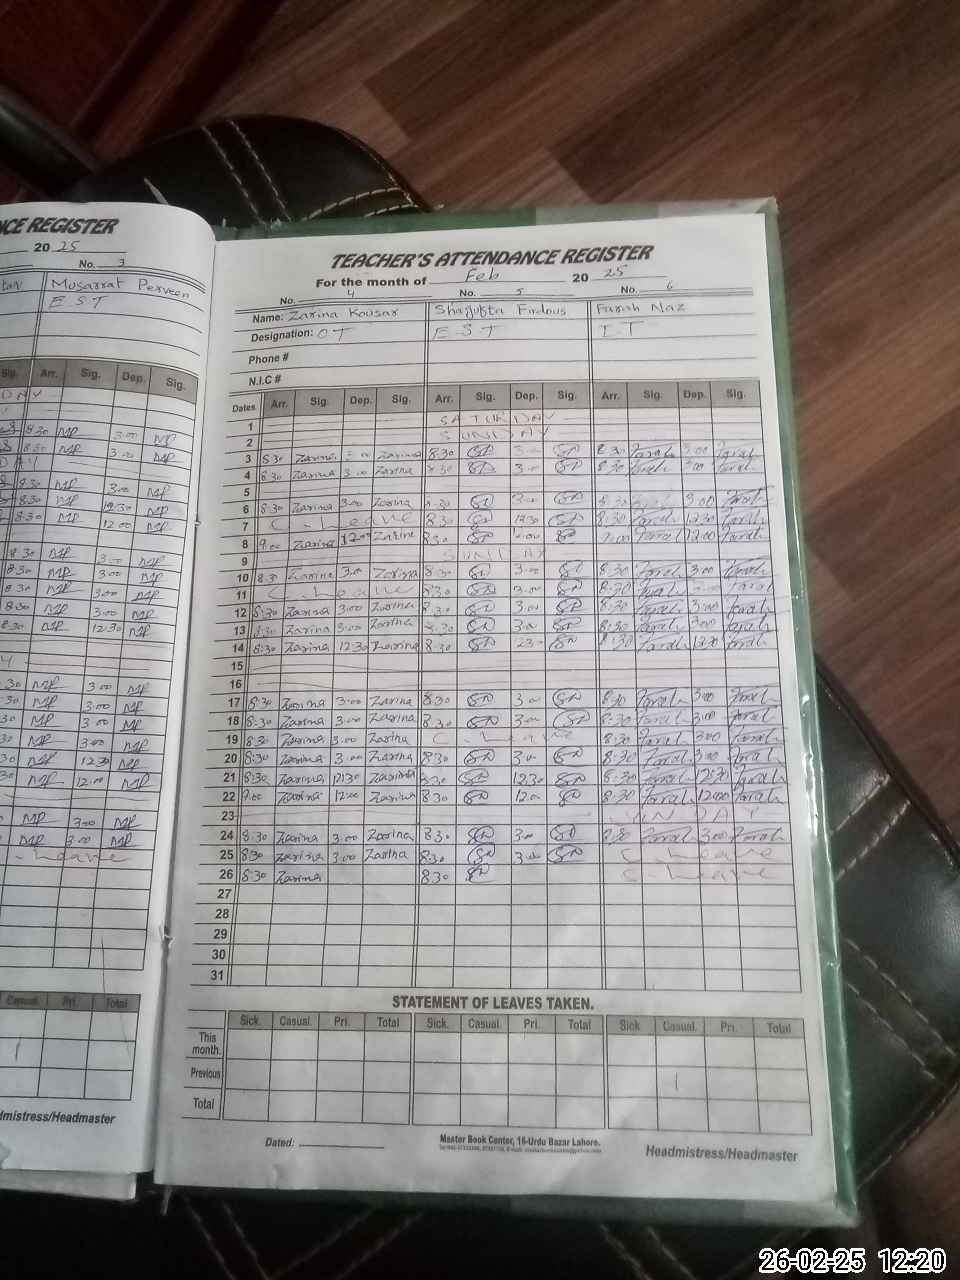 NCE REGISTER
20 25
No. 3
Musarrat Perveen
E S T
Sig. Arr. Sig. Dep. Sig.
8:30 MP 3:00 MP
8:30 MP 3:00 MP
8:30 MP 3:00 MP
8:30 MP 12:30 MP
8:30 MP 12:00 MP
8:30 MP 3:00 MP
8:30 MP 3:00 MP
8:30 MP 3:00 MP
8:30 MP 3:00 MP
8:30 MP 12:30 MP
:30 MP 3:00 MP
:30 MP 3:00 MP
:30 MP 3:00 MP
30 MP 3:00 MP
30 MP 12:30 MP
30 MP 12:00 MP
MP 3:00 MP
MP 3:00 MP
Leave
Casual. Pri. Total
dmistress/Headmaster
TEACHER'S ATTENDANCE REGISTER
For the month of Feb 20 25
No. 4 No. 5 No. 6
Name: Zarina Kousar Shagufta Firdous Farah Naz
Designation: OT E S T
Phone #
N.I.C #
Dates Arr. Sig. Dep. Sig. Arr. Sig. Dep. Sig. Arr. Sig. Dep. Sig.
1 SATURDAY
2 SUNDAY
3 8:30 Zarina Zarina 8:30 8:30 Farah 3:00 Farah
4 8:30 Zarina 3:00 Zarina 8:30 3:00 8:30 Farah 3:00 Farah
5
6 8:30 Zarina 3:00 Zarina 8:30 3:00 8:30 Farah 3:00 Farah
7 C. Leave 8:30 12:30 8:30 Farah 12:30 Farah
8 9:00 Zarina 12:00 Zarina 8:30 Farah 12:00 Farah
9 SUNDAY
10 8:30 Zarina 3:00 Zarina 8:30 3:00 8:30 Farah 3:00 Farah
11 C. Leave 8:30 3:00 8:30 Farah Farah
12 8:30 Zarina 3:00 Zarina 8:30 3:00 8:30 Farah 3:00 Farah
13 8:30 Zarina 3:00 Zarina 8:30 3:00 8:30 Farah 3:00 Farah
14 8:30 Zarina 12:30 Zarina 8:30 8:30 Farah 12:30 Farah
15
16
17 8:30 Zarina 3:00 Zarina 8:30 3:00 8:30 Farah 3:00 Farah
18 8:30 Zarina 3:00 Zarina 8:30 3:00 8:30 Farah 3:00 Farah
19 8:30 Zarina 3:00 Zarina C. Leave 8:30 Farah 3:00 Farah
20 8:30 Zarina 3:00 Zarina 8:30 3:00 8:30 Farah 3:00 Farah
21 8:30 Zarina 12:30 Zarina 8:30 12:30 8:30 Farah 12:30 Farah
22 9:00 Zarina 12:00 Zarina 8:30 12:00 8:30 Farah 12:00 Farah
23 SUNDAY
24 8:30 Zarina 3:00 Zarina 8:30 3:00 8:30 Farah 3:00 Farah
25 8:30 Zarina 3:00 Zarina 8:30 3:00 C. Leave
26 8:30 Zarina 8:30 C. Leave
27
28
29
30
31
STATEMENT OF LEAVES TAKEN.
Sick. Casual. Pri. Total Sick. Casual. Pri. Total Sick Casual. Pri. Total
This month.
Previous 1
Total
Dated:
Master Book Center, 16-Urdu Bazar Lahore.
Headmistress/Headmaster
26-02-25 12:20